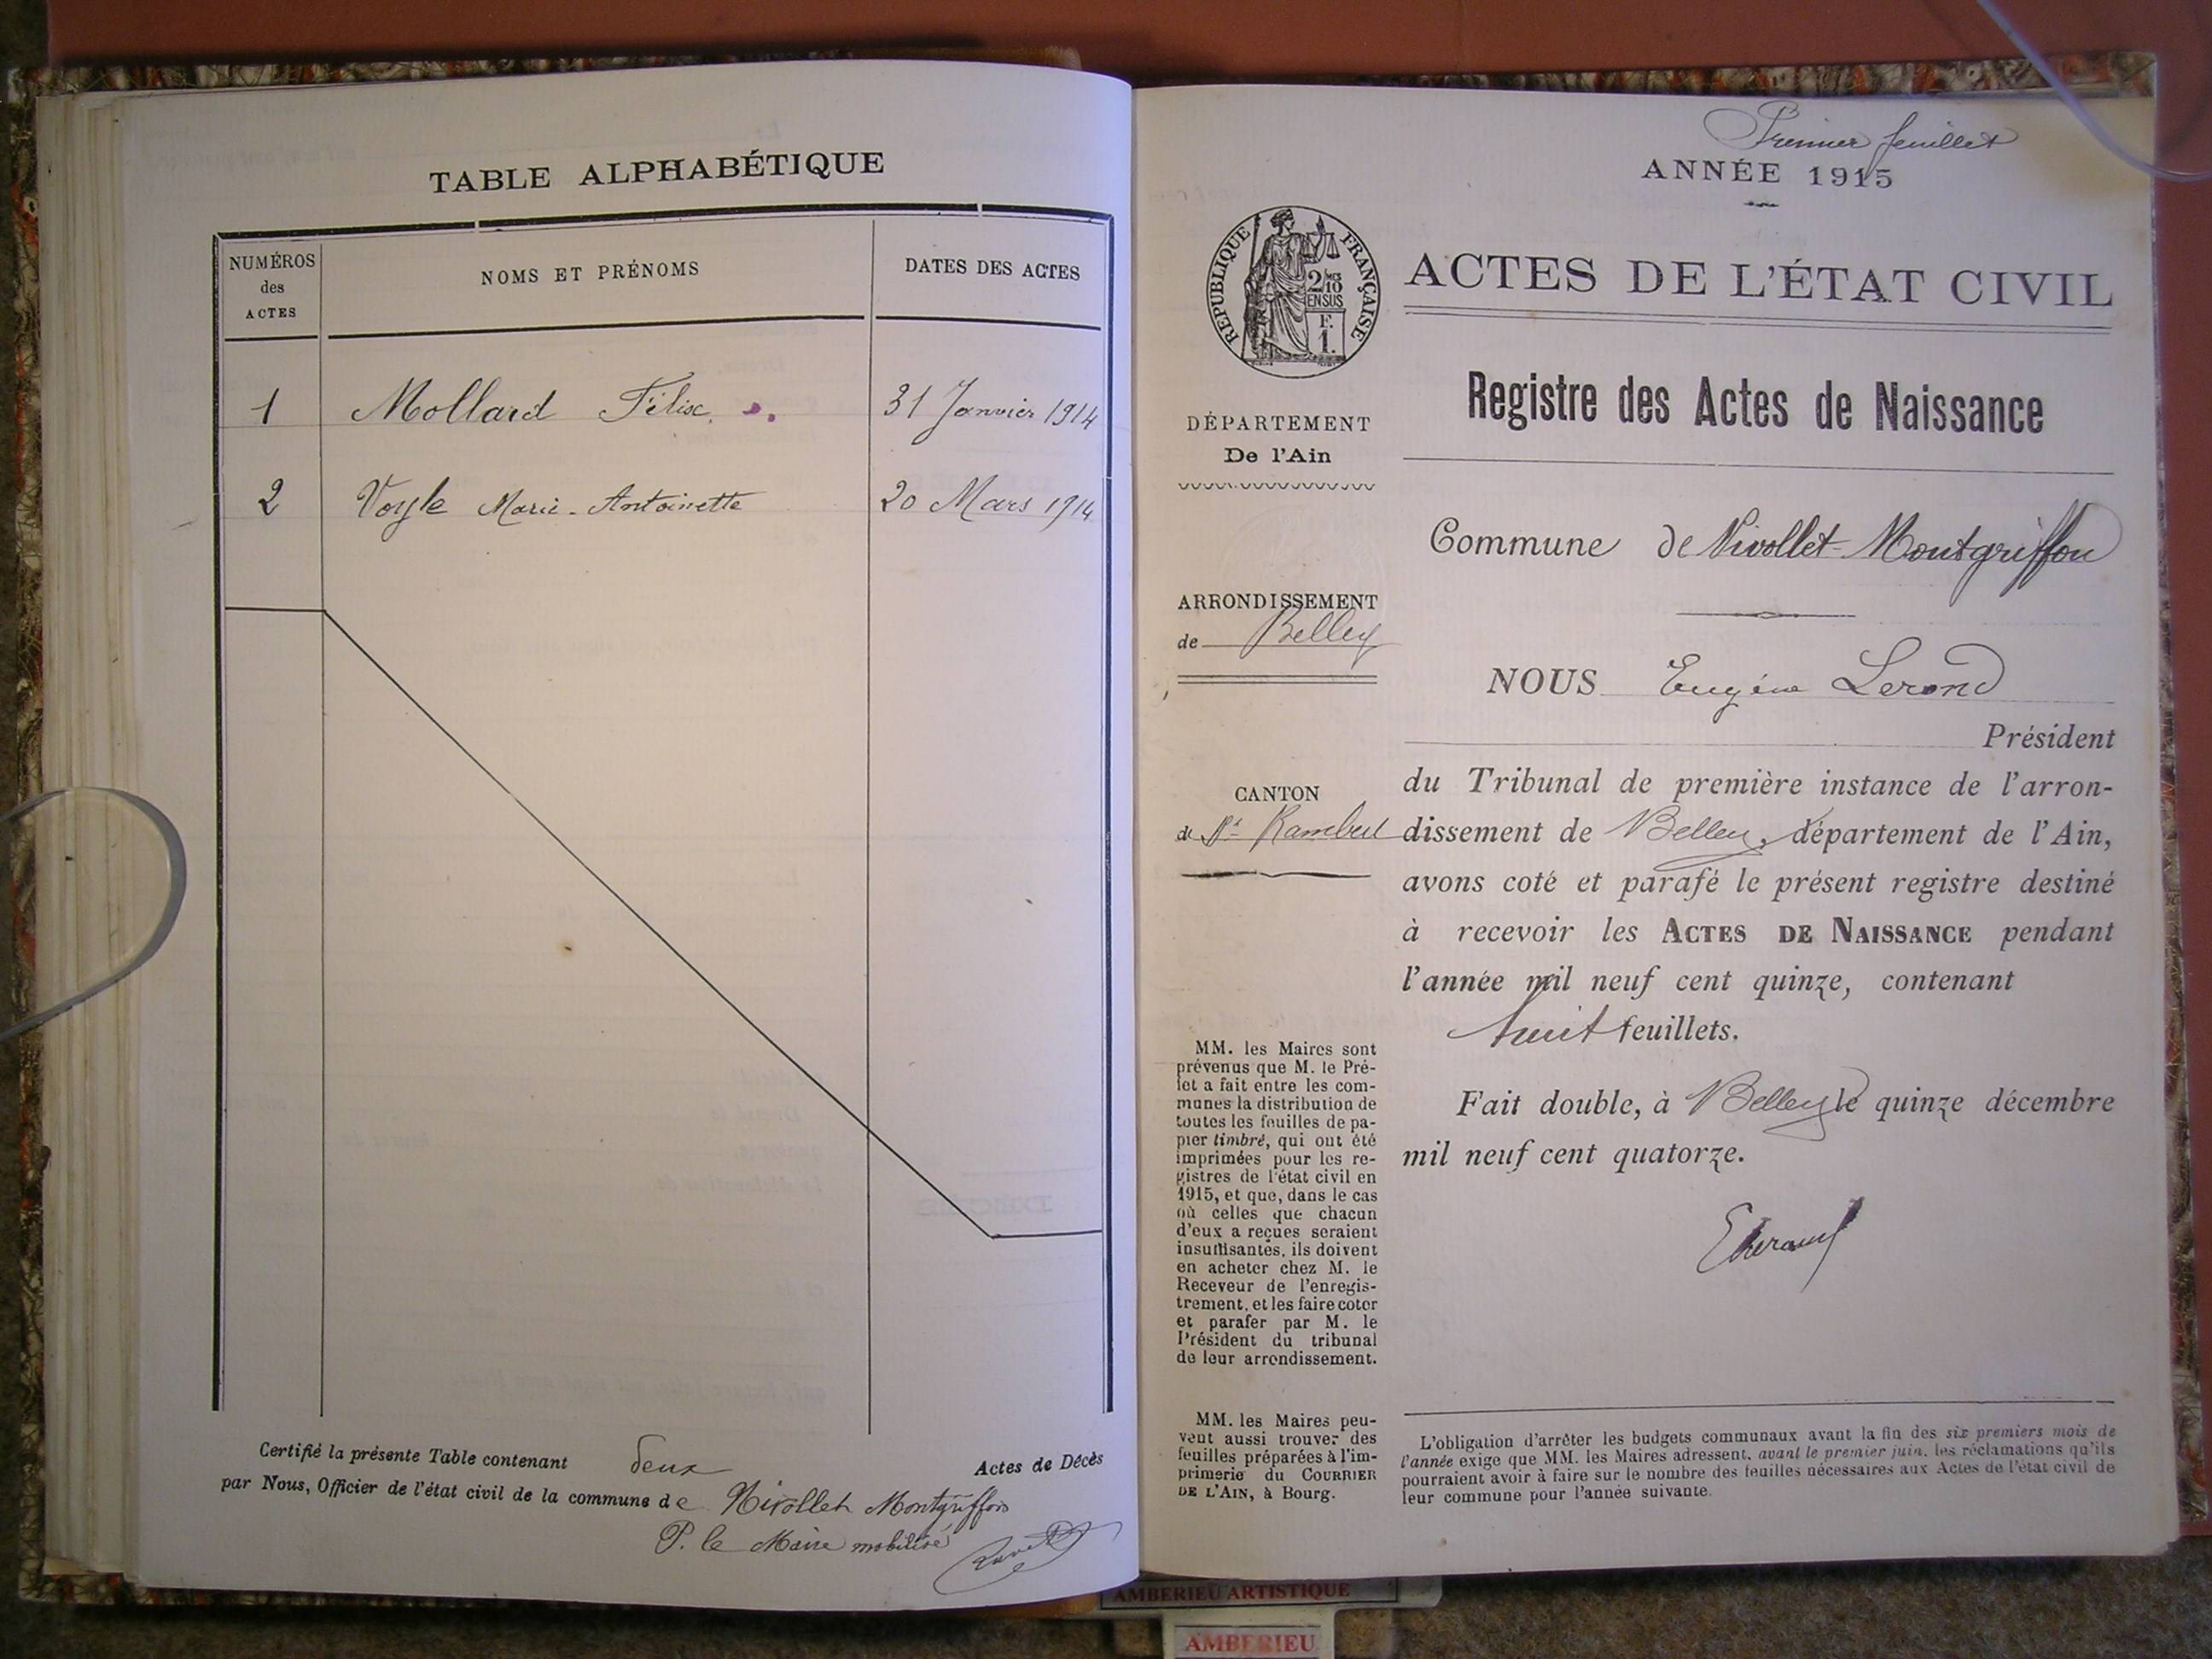 TABLE ALPHABÉTIQUE
NUMÉROS
des
ACTES
NOMS ET PRÉNOMS
DATES DES ACTES
1 Mollard Félix. 31 Janvier 1914
2 Voyle Marie-Antoinette 20 Mars 1914
Certifié la présente Table contenant deux Actes de Décès
par Nous, Officier de l'état civil de la commune de Nivollet Montgriffon
P. le Maire mobilisé
Premier feuillet
ANNÉE 1915
RÉPUBLIQUE FRANÇAISE
2/10
EN SUS
F.
1.
ACTES DE L'ÉTAT CIVIL
Registre des Actes de Naissance
DÉPARTEMENT
De l'Ain
Commune de Nivollet-Montgriffon
ARRONDISSEMENT
de Belley
NOUS Eugène Lerond
Président
CANTON
de St Rambert
du Tribunal de première instance de l'arron-
dissement de Belley, département de l'Ain,
avons coté et parafé le présent registre destiné
à recevoir les ACTES DE NAISSANCE pendant
l'année mil neuf cent quinze, contenant
huit feuillets.
Fait double, à Belley le quinze décembre
mil neuf cent quatorze.
MM. les Maires sont
prévenus que M. le Pré-
fet a fait entre les com-
munes la distribution de
toutes les feuilles de pa-
pier timbré, qui ont été
imprimées pour les re-
gistres de l'état civil en
1915, et que, dans le cas
où celles que chacun
d'eux a reçues seraient
insuffisantes, ils doivent
en acheter chez M. le
Receveur de l'enregis-
trement, et les faire coter
et parafer par M. le
Président du tribunal
de leur arrondissement.
MM. les Maires peu-
vent aussi trouver des
feuilles préparées à l'im-
primerie du COURRIER
DE L'AIN, à Bourg.
L'obligation d'arrêter les budgets communaux avant la fin des six premiers mois de
l'année exige que MM. les Maires adressent, avant le premier juin, les réclamations qu'ils
pourraient avoir à faire sur le nombre des feuilles nécessaires aux Actes de l'état civil de
leur commune pour l'année suivante.
AMBERIEU ARTISTIQUE
AMBERIEU